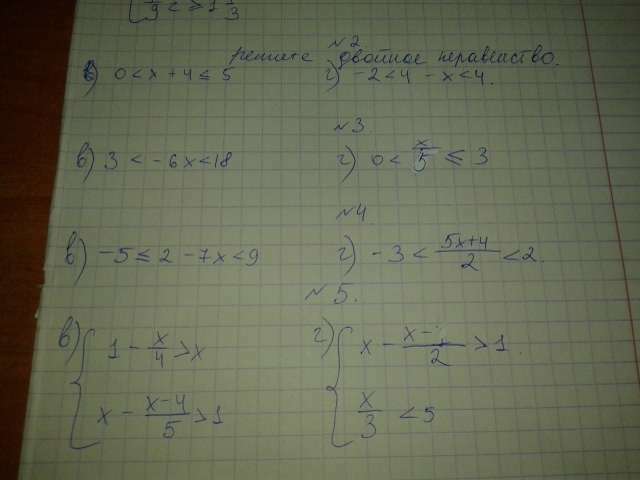 №2
решите двойное неравенство.
в) 0 < x + 4 ≤ 5 г) -2 < 4 - x < 4.
№3.
в) 3 < -6x < 18 г) 0 < x/5 ≤ 3
№4
в) -5 ≤ 2 - 7x < 9 г) -3 < (5x+4)/2 < 2.
№5.
в) { 1 - x/4 > x г) { x - (x-)/2 > 1.
x - (x-4)/5 > 1 x/3 < 5